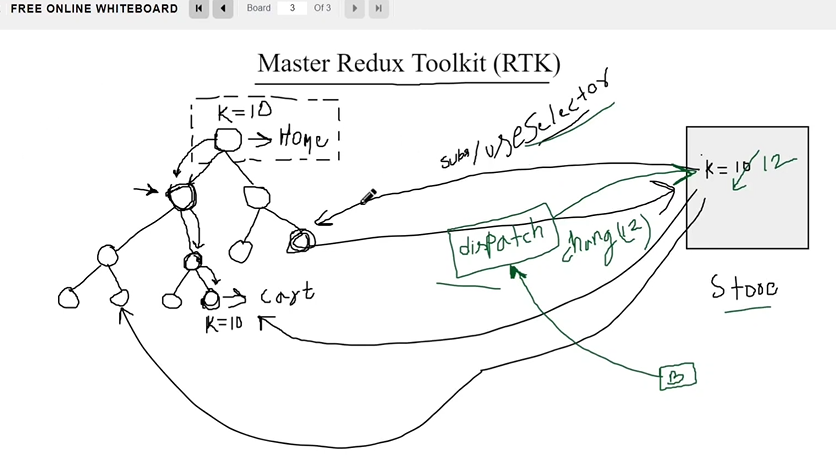 FREE ONLINE WHITEBOARD
Board 3 Of 3
Master Redux Toolkit (RTK)
K=10
Home
subs/useSelector
K = 10 12
dispatch
chang(12)
Store
Cart
K=10
B